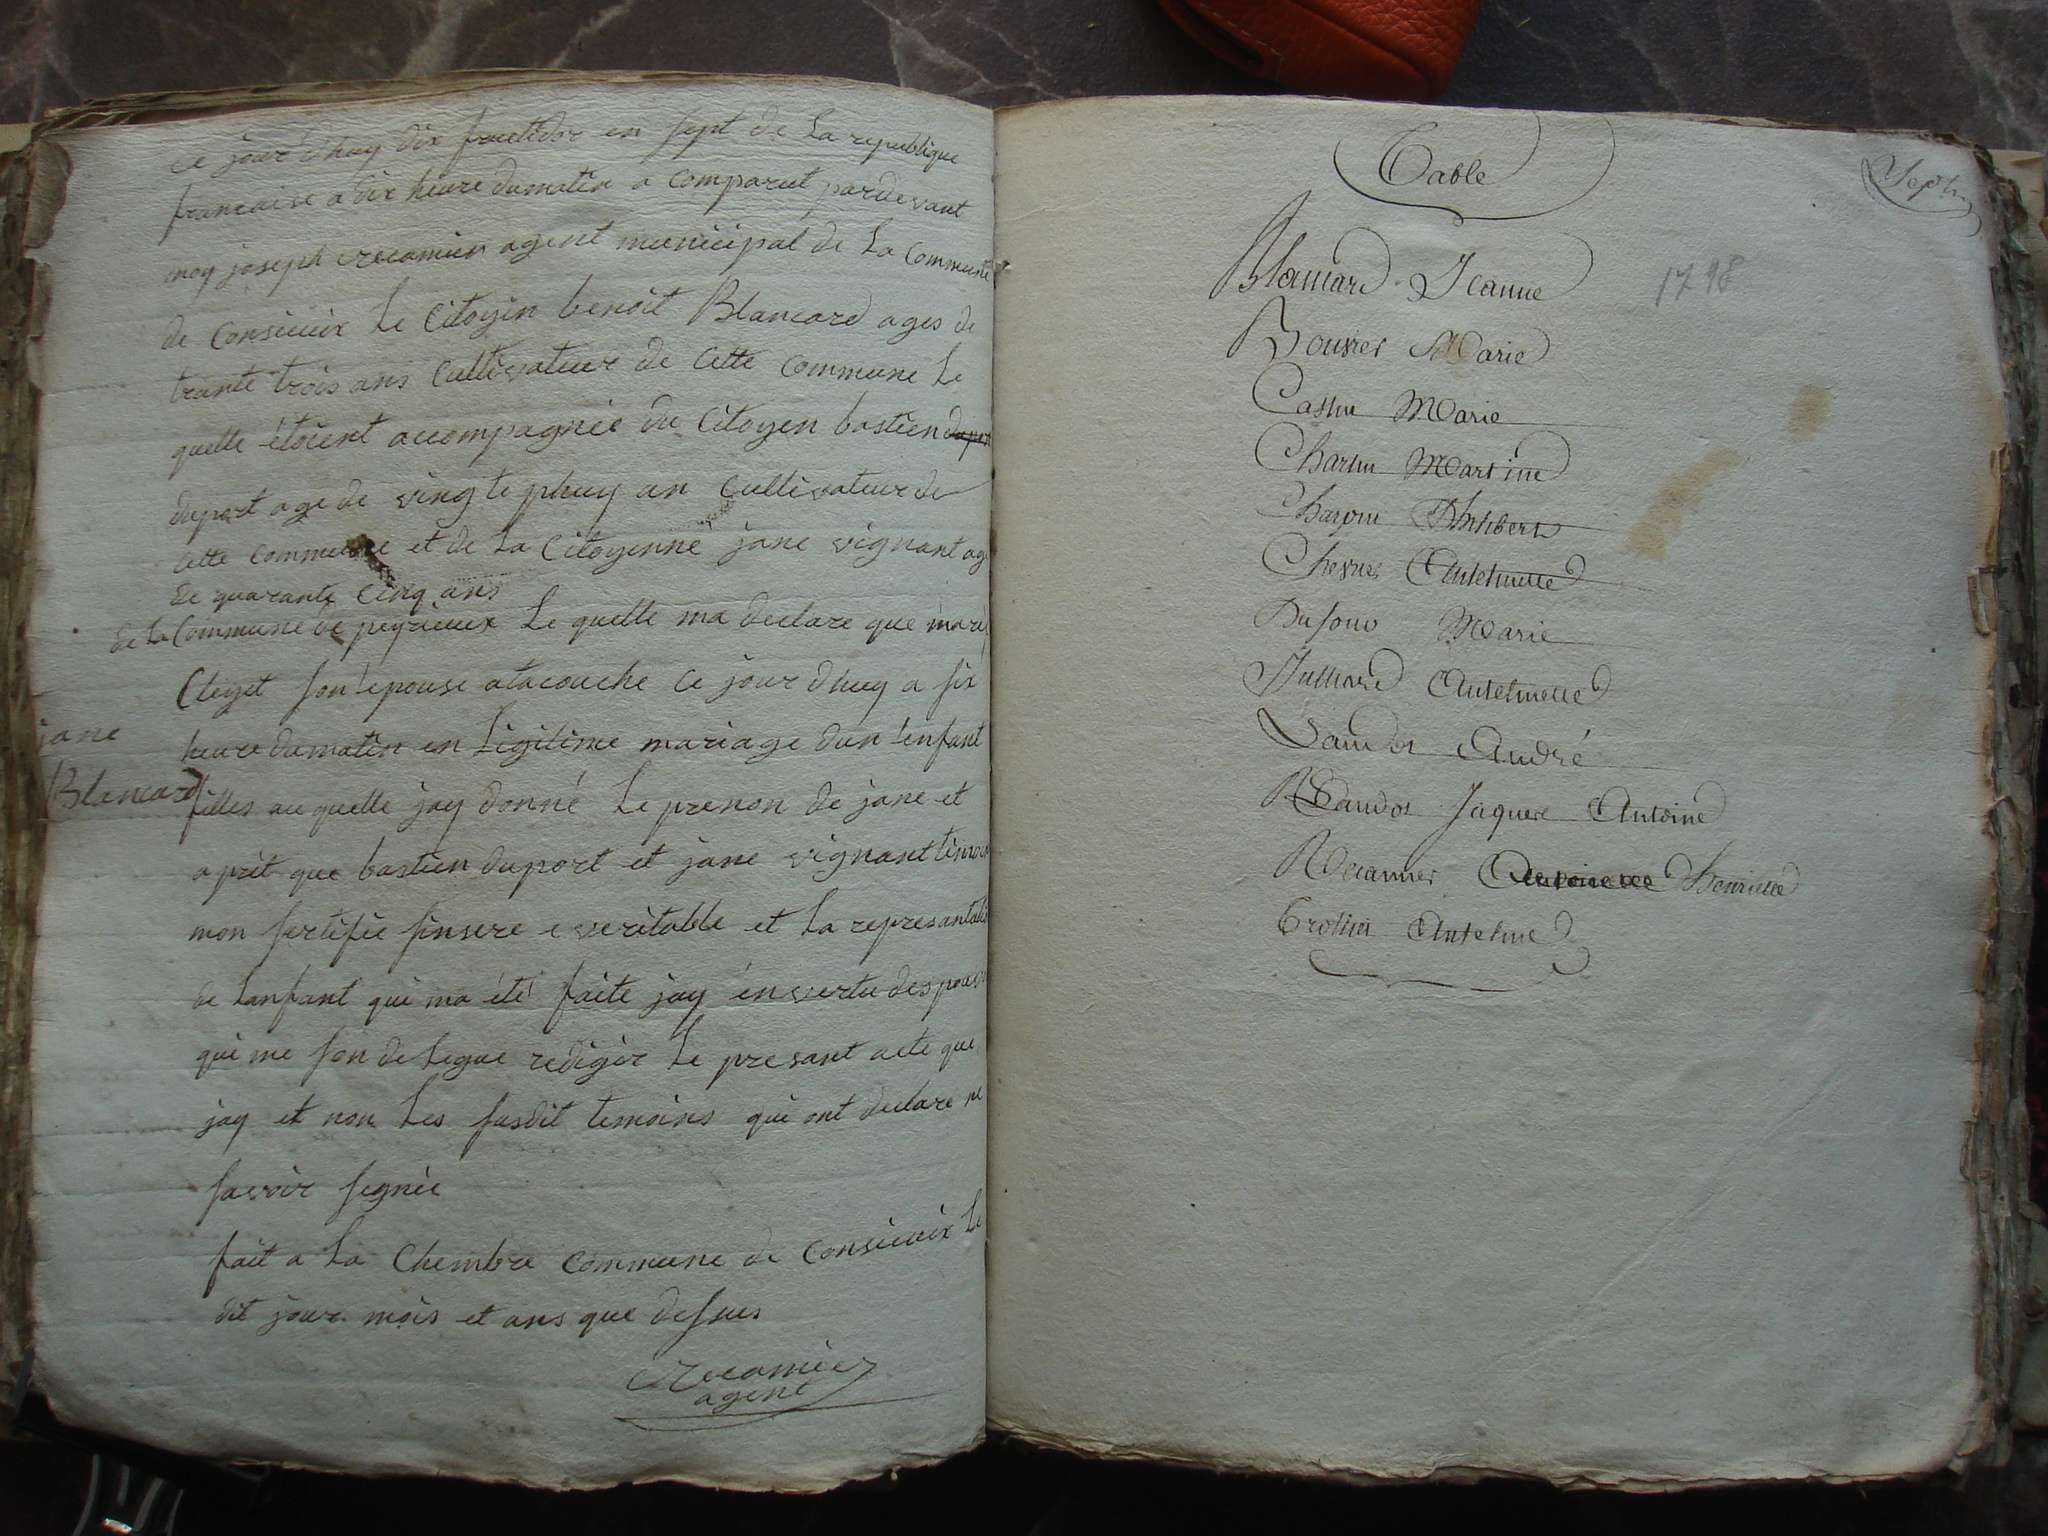 ce jour dhuy dix fructidor en sept de La republique
francaise a dix heure dumatin a comparut pardevant
moy joseph recamier agent municipal de La commune
de Consieuix Le Citoyin benoit Blancard ages de
trante trois ans Cultivateur de Cette commune Le
quelle étoient accompagnié du Citoyen bastien
duport age de vingte phuy an Cultivateur de
cette commune et de La Citoyenne jane vignant age
de quarante Cinq ans
de La Commune de peyrieux Le quelle ma declare que marie
Cleyet son épouse atacouche Ce jour dhuy a six
heure dumatin en Ligitime mariage dun Lenfant
jane
Blancard
filles au quelle jay donné Le prenon de jane et
aprèt que bastien duport et jane vignant
mon sertifié sinsere e veritable et La
de Lanfant qui ma été faite jay én vertu des
qui me son delegue redigér Le presant acte que
jay et non Les susdit temoins qui ont declare ne
savoir signée
fait a La Chembre Commune de Consieuix Le
dit jour mois et ans que desus
Recamier
agent
Table
Sept
1798
Blancard Jeanne
Bouvier Marie
Castin Marie
Charlin Martine
Philibert
Antelmette
Dufour Marie
Julliard Antelmette
André
Jaques Antoine
Recamier Antoinette Henriette
Trollier Antelme